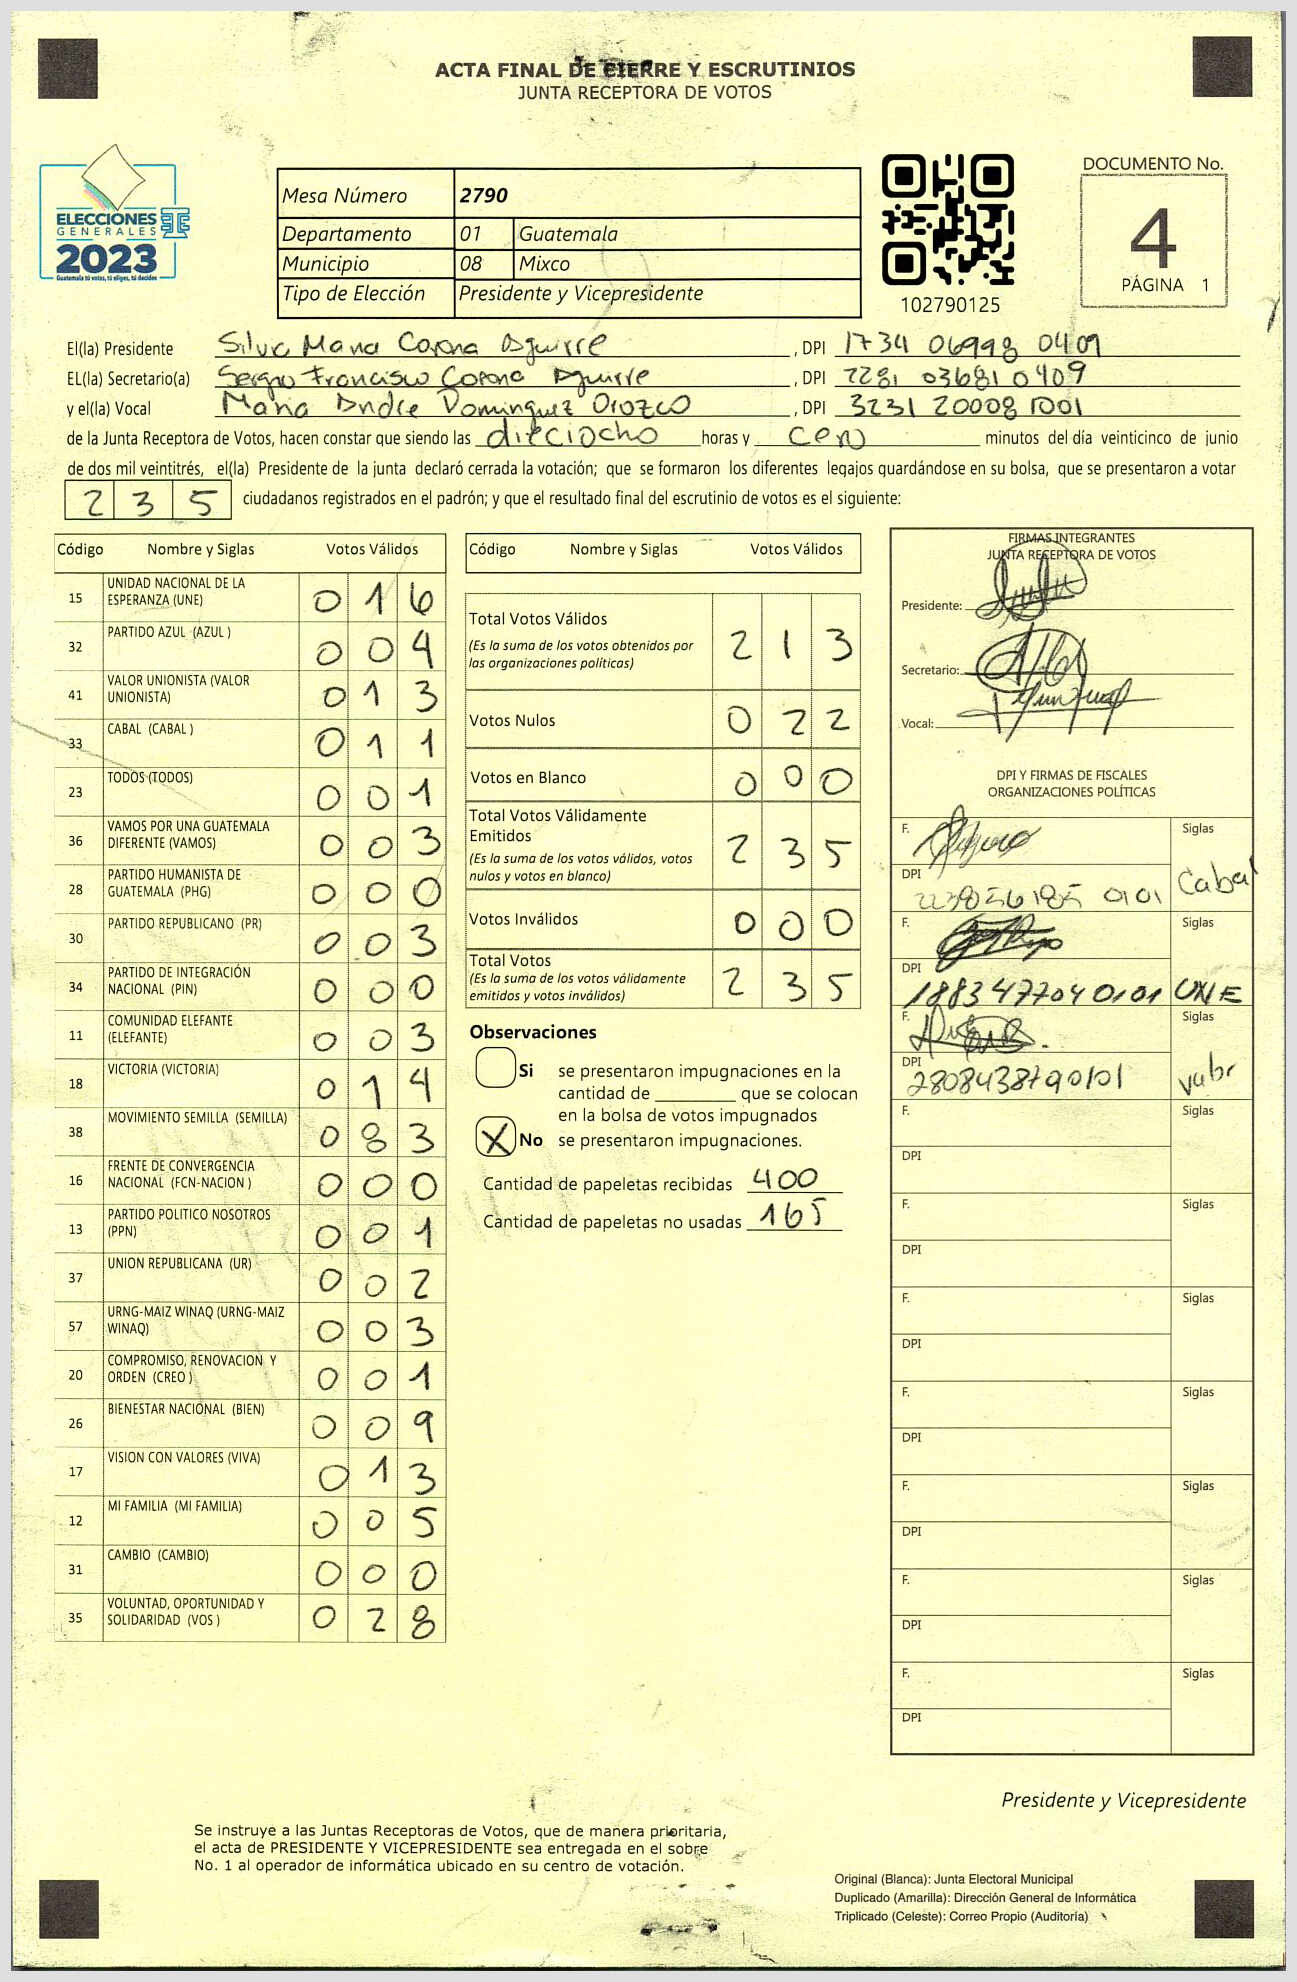 ACTA FINAL DE CIERRE Y ESCRUTINIOS
JUNTA RECEPTORA DE VOTOS
ELECCIONES
GENERALES
2023
Guatemala tú votas, tú eliges, tú decides
Mesa Número 2790
Departamento 01 Guatemala
Municipio 08 Mixco
Tipo de Elección Presidente y Vicepresidente
102790125
DOCUMENTO No.
4
PÁGINA 1
El(la) Presidente Silvia Maria Corona Aguirre, DPI 1734 06998 0409
EL(la) Secretario(a) Sergio Francisco Corona Aguirre, DPI 2281 03681 0409
y el(la) Vocal Maria Andre Dominguez Orozco, DPI 3231 20008 1001
de la Junta Receptora de Votos, hacen constar que siendo las dieciocho horas y cero minutos del día veinticinco de junio
de dos mil veintitrés, el(la) Presidente de la junta declaró cerrada la votación; que se formaron los diferentes legajos guardándose en su bolsa, que se presentaron a votar
2 3 5 ciudadanos registrados en el padrón; y que el resultado final del escrutinio de votos es el siguiente:
Código Nombre y Siglas Votos Válidos
15 UNIDAD NACIONAL DE LA ESPERANZA (UNE) 0 1 6
32 PARTIDO AZUL (AZUL ) 0 0 4
41 VALOR UNIONISTA (VALOR UNIONISTA) 0 1 3
33 CABAL (CABAL ) 0 1 1
23 TODOS (TODOS) 0 0 1
36 VAMOS POR UNA GUATEMALA DIFERENTE (VAMOS) 0 0 3
28 PARTIDO HUMANISTA DE GUATEMALA (PHG) 0 0 0
30 PARTIDO REPUBLICANO (PR) 0 0 3
34 PARTIDO DE INTEGRACIÓN NACIONAL (PIN) 0 0 0
11 COMUNIDAD ELEFANTE (ELEFANTE) 0 0 3
18 VICTORIA (VICTORIA) 0 1 4
38 MOVIMIENTO SEMILLA (SEMILLA) 0 8 3
16 FRENTE DE CONVERGENCIA NACIONAL (FCN-NACION ) 0 0 0
13 PARTIDO POLITICO NOSOTROS (PPN) 0 0 1
37 UNION REPUBLICANA (UR) 0 0 2
57 URNG-MAIZ WINAQ (URNG-MAIZ WINAQ) 0 0 3
20 COMPROMISO, RENOVACION Y ORDEN (CREO ) 0 0 1
26 BIENESTAR NACIONAL (BIEN) 0 0 9
17 VISION CON VALORES (VIVA) 0 1 3
12 MI FAMILIA (MI FAMILIA) 0 0 5
31 CAMBIO (CAMBIO) 0 0 0
35 VOLUNTAD, OPORTUNIDAD Y SOLIDARIDAD (VOS ) 0 2 8
Código Nombre y Siglas Votos Válidos
Total Votos Válidos 2 1 3
(Es la suma de los votos obtenidos por
las organizaciones políticas)
Votos Nulos 0 2 2
Votos en Blanco 0 0 0
Total Votos Válidamente
Emitidos 2 3 5
(Es la suma de los votos válidos, votos
nulos y votos en blanco)
Votos Inválidos 0 0 0
Total Votos 2 3 5
(Es la suma de los votos válidamente
emitidos y votos inválidos)
Observaciones
Si se presentaron impugnaciones en la
cantidad de ________ que se colocan
en la bolsa de votos impugnados
X No se presentaron impugnaciones.
Cantidad de papeletas recibidas 400
Cantidad de papeletas no usadas 165
FIRMAS INTEGRANTES
JUNTA RECEPTORA DE VOTOS
Presidente:
Secretario:
Vocal:
DPI Y FIRMAS DE FISCALES
ORGANIZACIONES POLÍTICAS
F. Siglas
DPI 0101 Cabal
F. Siglas
DPI 1883477040101 UNE
F. Siglas
DPI 2808438790101 valor
F. Siglas
DPI
F. Siglas
DPI
F. Siglas
DPI
F. Siglas
DPI
F. Siglas
DPI
F. Siglas
DPI
F. Siglas
DPI
Presidente y Vicepresidente
Se instruye a las Juntas Receptoras de Votos, que de manera prioritaria,
el acta de PRESIDENTE Y VICEPRESIDENTE sea entregada en el sobre
No. 1 al operador de informática ubicado en su centro de votación.
Original (Blanca): Junta Electoral Municipal
Duplicado (Amarilla): Dirección General de Informática
Triplicado (Celeste): Correo Propio (Auditoría)